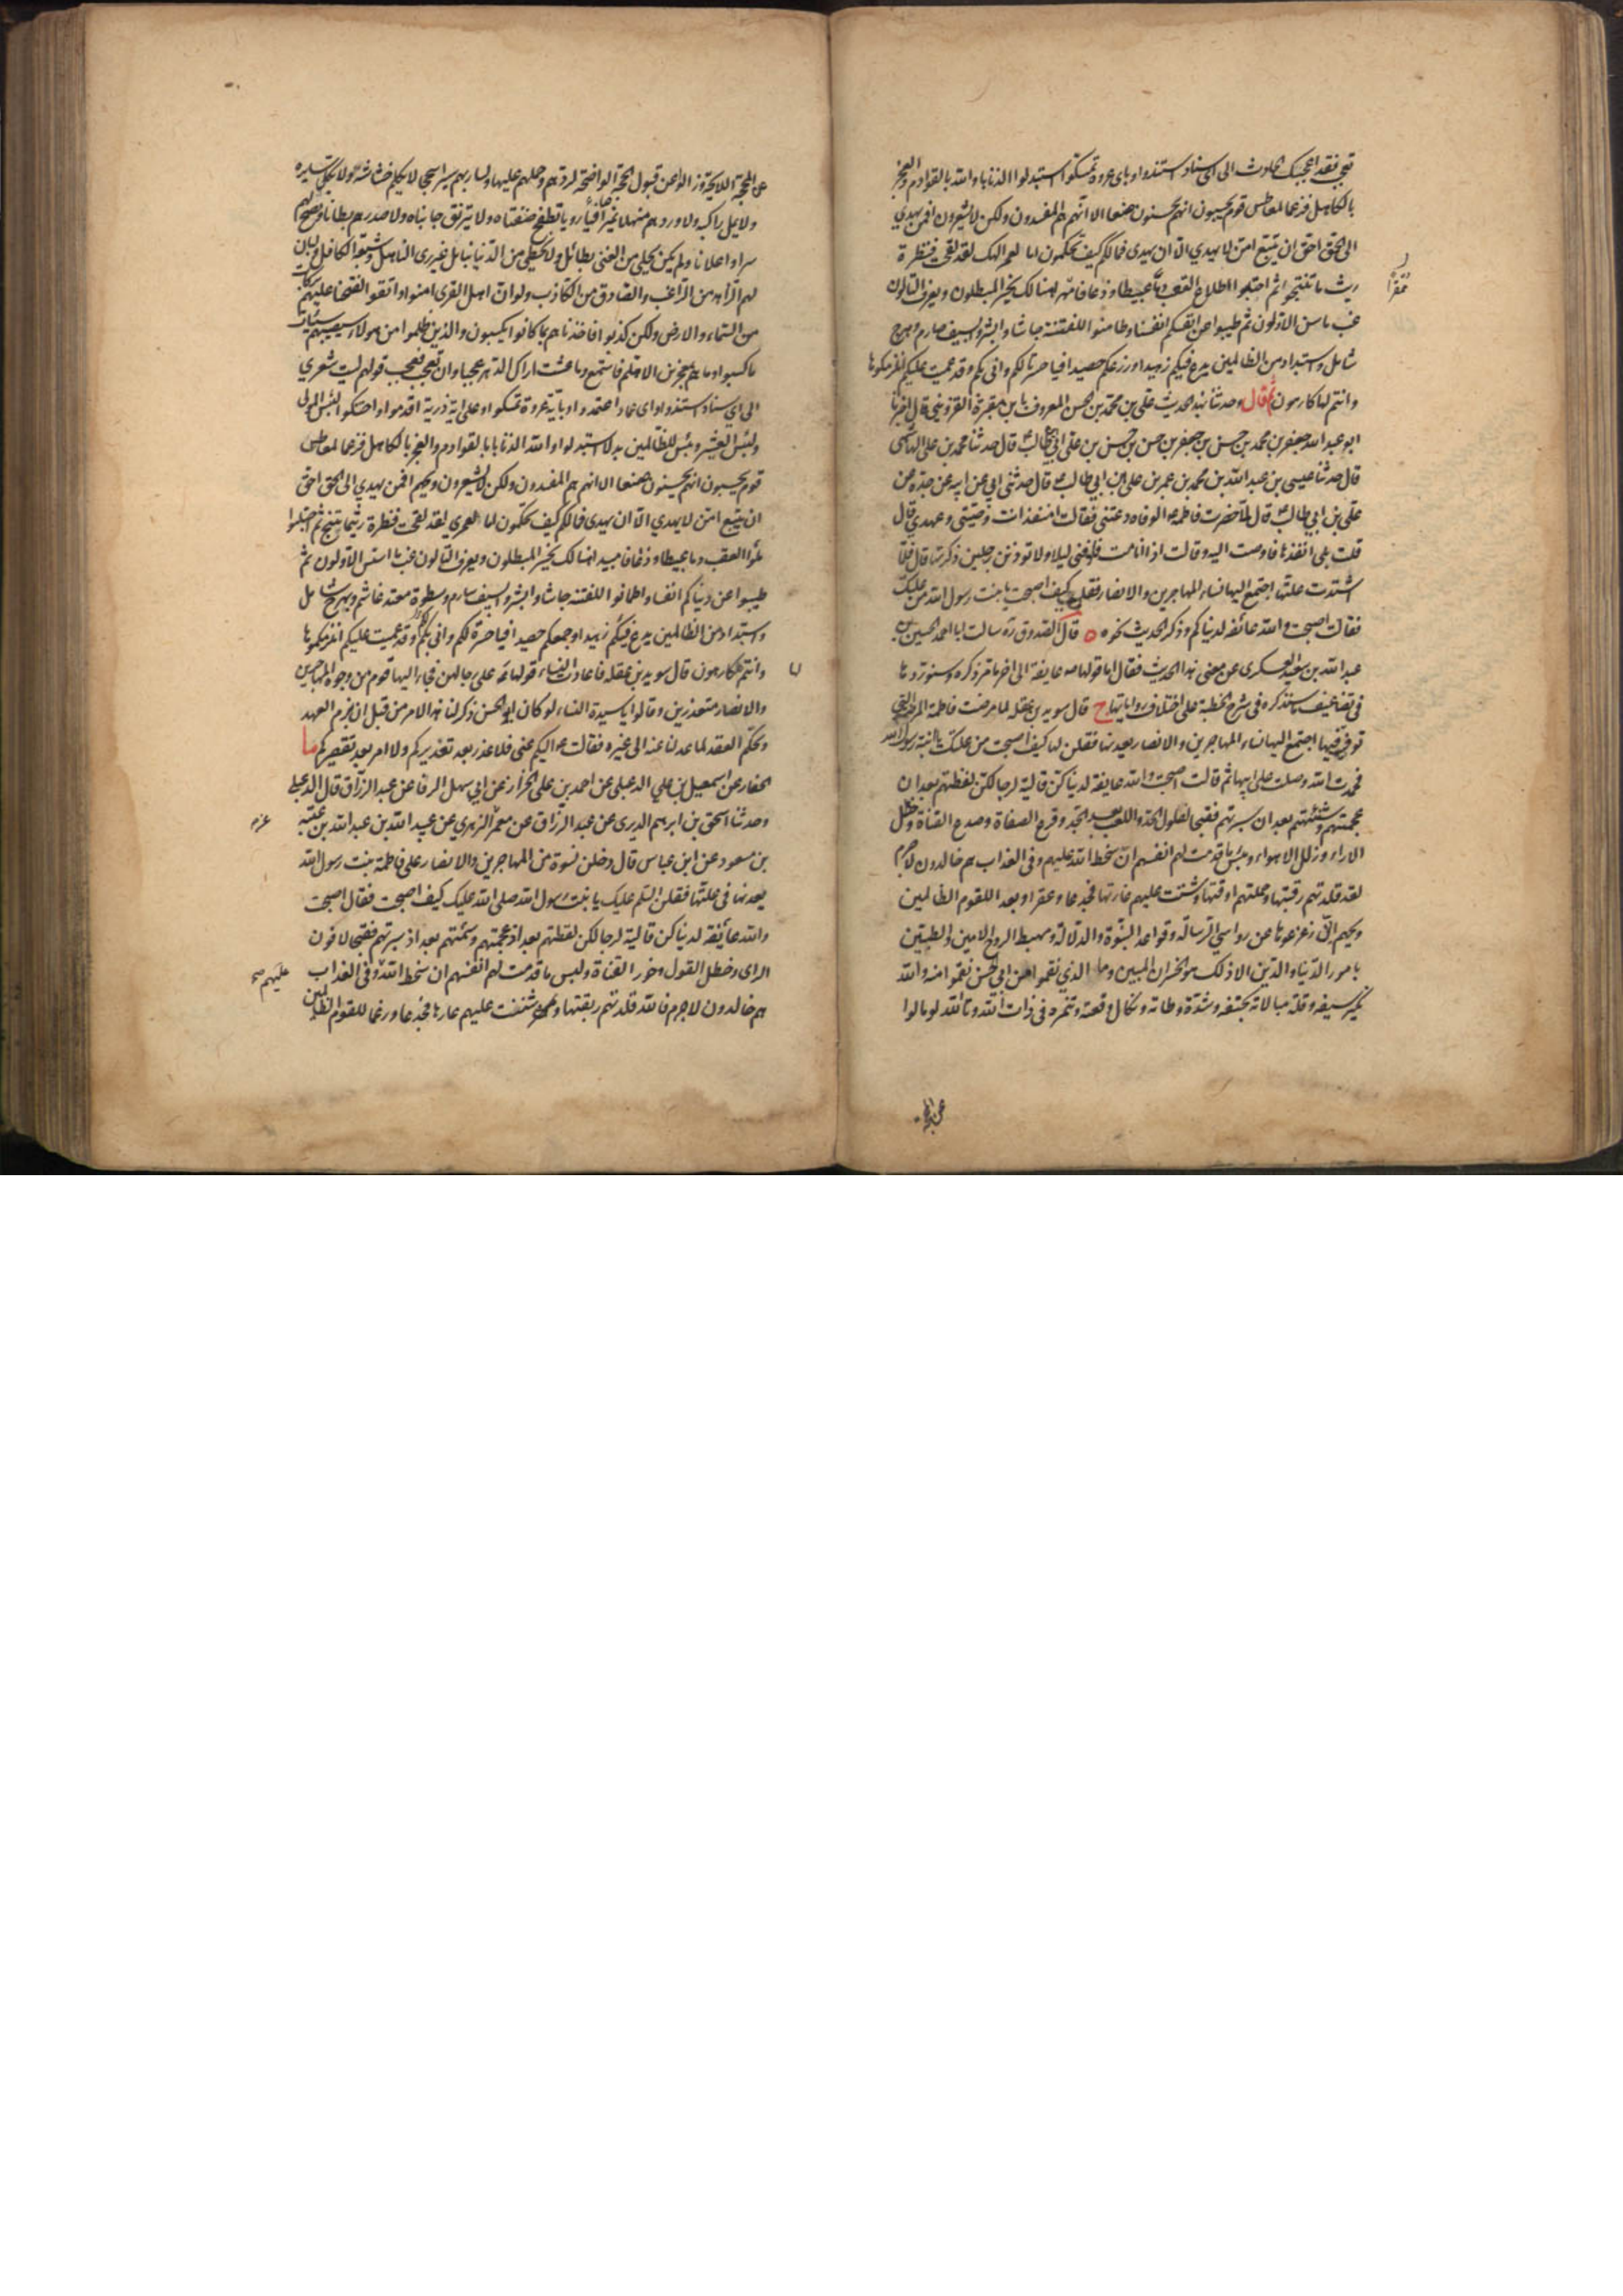 تعجب فقد اعجبك الحادث الى اي سناد استندوا وباي عروة تمسكوا استبدلوا الذنابا والله بالقوادم والعجز
بالكاهل فرغما لمعاطس قوم يحسبون انهم يحسنون صنعا الا انهم هم المفسدون ولكن لا يشعرون افمن يهدي
الى الحق احق ان يتبع امن لا يهدي الا ان يهدى فمالكم كيف تحكمون اما لعمر الهك لقد لقحت فنظرة
ريث ما تنتجوا ثم احتلبوا طلاع القعب دما عبيطا وذعافا ممقرا هنالك يخسر المبطلون ويعرف التالون
غب ما سن الاولون ثم طيبوا عن انفسكم انفسا وطامنوا للفتنة جاشا وابشروا بسيف صارم وهرج
شامل واستبداد من الظالمين يدع فيكم زهيدا وزرعكم حصيدا فيا حسرتا لكم وانى بكم وقد عميت عليكم انلزمكموها
وانتم لها كارهون ثم قال وحدثنا بهذا الحديث علي بن محمد بن الحسن المعروف بابن مقبرة القزويني قال اخبرنا
ابو عبد الله جعفر بن محمد بن حسن بن جعفر بن حسن بن حسن بن علي بن ابي طالب قال حدثنا محمد بن علي الهاشمي
قال حدثنا عيسى بن عبد الله بن محمد بن عمر بن علي ابن ابي طالب قال حدثني ابي عن ابيه عن جده عن
علي بن ابي طالب قال لما حضرت فاطمة الوفاه دعتني فقالت امنفذ انت وصيتي وعهدي قال
قلت بلى انفذها فاوصت اليه وقالت اذا انا مت فادفني ليلا ولا توذنن رجلين ذكرتهما قال فلما
اشتدت علتها اجتمع اليها نساء المهاجرين والانصار فقلن كيف اصبحت يا بنت رسول الله من علتك
فقالت اصبحت والله عائفه لدنياكم وذكر الحديث نحوه ٥ قال الصدوق ره سالت ابا احمد الحسين بن
عبد الله بن سعيد العسكري عن معنى هذا الحديث فقال اما قولها عايفة الى اخر ما مر ذكره وسنوردها
في تضاعيف ما سنذكره في شرح الخطبة على اختلاف رواياتها ج قال سويد بن غفله لما مرضت فاطمة المرضة التي
توفيت فيها اجتمع اليها نساء المهاجرين والانصار يعدنها فقلن لها كيف اصبحت من علتك يا ابنة رسول الله
فحمدت الله وصلت على ابيها ثم قالت اصبحت والله عايفة لدنياكن قالية لرجالكن لفظتهم بعد ان
عجمتهم وشنئتهم بعد ان سبرتهم فقبحا لفلول الحد واللعب بعد الجد وقرع الصفاة وصدع القناة وخطل
الاراء وزلل الاهواء وبئس ما قدمت لهم انفسهم ان سخط الله عليهم وفي العذاب هم خالدون لا جرم
لقد قلدتهم ربقتها وحملتهم اوقتها وشننت عليهم غارتها فجدعا وعقرا وبعدا للقوم الظالمين
ويحهم انى زعزعوها عن رواسي الرسالة وقواعد النبوة والدلالة ومهبط الروح الامين والطبين
بامور الدنيا والدين الا ذلك هو الخسران المبين وما الذي نقموا من ابي الحسن نقموا منه والله
نكير سيفه وقلة مبالاته بحتفه وشدة وطاته ونكال وقعته وتنمره في ذات الله وتالله لو مالوا
ممقرا
عن المحجة اللايحة وزالوا عن قبول الحجة الواضحة لردهم وحملهم عليها ولسار بهم سيرا سجحا لا يكلم خشاشه ولا يكل سايره
ولا يمل راكبه ولاوردهم منهلا نميرا صافيا رويا تطفح ضفتاه ولا يترنق جانباه ولاصدرهم بطانا ونصح لهم
سرا واعلانا ولم يكن يحلى من الغنى بطائل ولا يحظى من الدنيا بنائل غير ري الناهل وشبعة الكافل ولبان
لهم الزاهد من الراغب والصادق من الكاذب ولو ان اهل القرى امنوا واتقوا لفتحنا عليهم بركات
من السماء والارض ولكن كذبوا فاخذناهم بما كانوا يكسبون والذين ظلموا من هولاء سيصيبهم سيئات
ما كسبوا وما هم بمعجزين الا هلم فاستمع وما عشت اراك الدهر عجبا وان تعجب فعجب قولهم ليت شعري
الى اي سناد استندوا والى اي عماد اعتمدوا وباية عروة تمسكوا وعلى اية ذرية اقدموا واحتنكوا لبئس المولى
ولبئس العشير وبئس للظالمين بدلا استبدلوا والله الذنابا بالقوادم والعجز بالكاهل فرغما لمعاطس
قوم يحسبون انهم يحسنون صنعا الا انهم هم المفسدون ولكن لا يشعرون ويحهم افمن يهدي الى الحق احق
ان يتبع امن لا يهدي الا ان يهدى فمالكم كيف تحكمون اما لعمري لقد لقحت فنظرة ريثما تنتج ثم احتلبوا
ملؤا القعب دما عبيطا وذعافا مبيدا هنالك يخسر المبطلون ويعرف التالون غب ما اسس الاولون ثم
طيبوا عن دنياكم انفسا واطمانوا للفتنة جاشا وابشروا بسيف صارم وسطوة معتد غاشم وبهرج شامل
واستبداد من الظالمين يدع فيكم زهيدا وجمعكم حصيدا فيا حسرة لكم وانى بكم وقد عميت عليكم انلزمكموها
وانتم لها كارهون قال سويد بن غفله فاعادت النساء قولها على رجالهن فجاء اليها قوم من وجوه المهاجرين
والانصار معتذرين وقالوا يا سيدة النساء لو كان ابو الحسن ذكر لنا هذا الامر من قبل ان يبرم العهد
ويحكم العقد لما عدلنا عنه الى غيره فقالت اليكم عني فلا عذر بعد تعذيركم ولا امر بعد تقصيركم ما
الحفار عن اسمعيل بن علي الدعبلي عن احمد بن علي الخزاز عن ابي سهل الرفا عن عبد الرزاق قال الدعبلي
وحدثنا اسحق بن ابراهيم الدبري عن عبد الرزاق عن معمر الزهري عن عبيد الله بن عبد الله بن عتبه
بن مسعود عن ابن عباس قال دخلن نسوة من المهاجرين والانصار على فاطمة بنت رسول الله
يعدنها في علتها فقلن السلم عليك يا بنت رسول الله صلى الله عليك كيف اصبحت فقال اصبحت
والله عائفة لدنياكن قالية لرجالكن لفظتهم بعد اذ عجمتهم وسئمتهم بعد اذ سبرتهم فقبحا لافون
الراى وخطل القول وخور القناة ولبس ما قدمت لهم انفسهم ان سخط الله وفي العذاب
هم خالدون لا جرم والله قلدتهم ربقتها وشننت عليهم عارها فجدعا ورغما للقوم الظالمين
عليهم صح